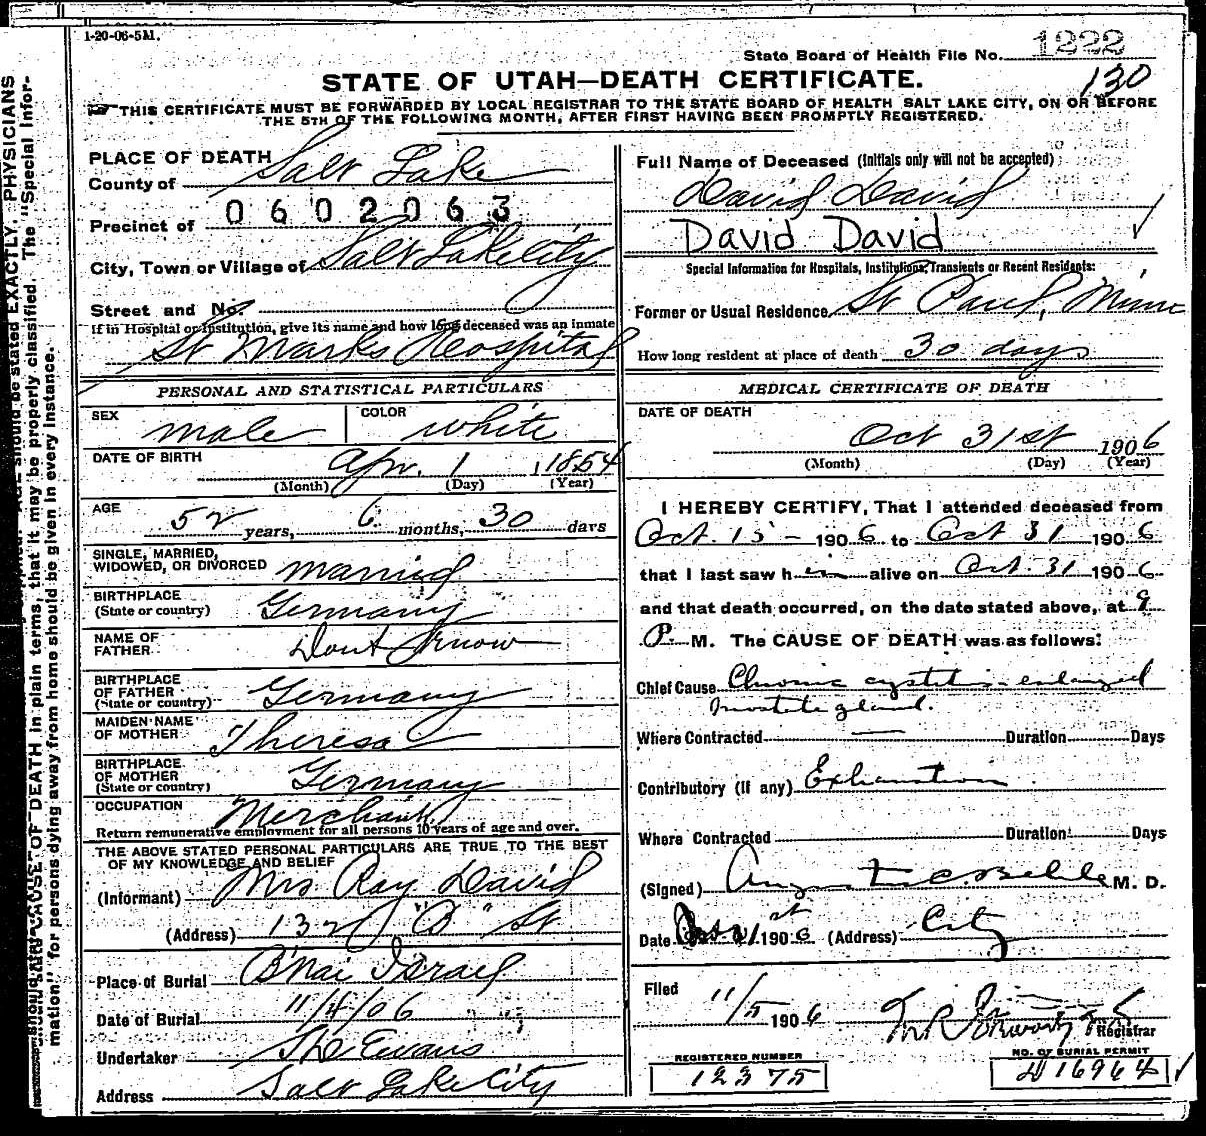 1-20-06-5M.
State Board of Health File No. 1222
130
STATE OF UTAH—DEATH CERTIFICATE.
THIS CERTIFICATE MUST BE FORWARDED BY LOCAL REGISTRAR TO THE STATE BOARD OF HEALTH SALT LAKE CITY, ON OR BEFORE
THE 5TH OF THE FOLLOWING MONTH, AFTER FIRST HAVING BEEN PROMPTLY REGISTERED.
PLACE OF DEATH
County of Salt Lake
0602063
Precinct of
City, Town or Village of Salt Lake City
Street and No.
If in Hospital or Institution, give its name and how long deceased was an inmate
St Marks Hospital
PERSONAL AND STATISTICAL PARTICULARS
SEX male
COLOR white
DATE OF BIRTH Apr. 1, 1854
(Month) (Day) (Year)
AGE 52 years, 6 months, 30 days
SINGLE, MARRIED,
WIDOWED, OR DIVORCED married
BIRTHPLACE
(State or country) Germany
NAME OF
FATHER Dont Know
BIRTHPLACE
OF FATHER
(State or country) Germany
MAIDEN NAME
OF MOTHER Theresa
BIRTHPLACE
OF MOTHER
(State or country) Germany
OCCUPATION Merchant.
Return remunerative employment for all persons 10 years of age and over.
THE ABOVE STATED PERSONAL PARTICULARS ARE TRUE TO THE BEST
OF MY KNOWLEDGE AND BELIEF
(Informant) Mrs Ray David
(Address) 132 "B" St
Place of Burial B'Nai Israel
Date of Burial 11/4/06
Undertaker The Evans
Address Salt Lake City
Full Name of Deceased (Initials only will not be accepted)
David David
David David
Special Information for Hospitals, Institutions, Transients or Recent Residents:
Former or Usual Residence St Paul, Minn
How long resident at place of death 30 days
MEDICAL CERTIFICATE OF DEATH
DATE OF DEATH
Oct 31st 1906
(Month) (Day) (Year)
I HEREBY CERTIFY, That I attended deceased from
Oct. 15 - 1906 to Oct 31 1906
that I last saw him alive on Oct. 31 1906
and that death occurred, on the date stated above, at 9
P. M. The CAUSE OF DEATH was as follows:
Chief Cause Chronic cystitis - enlarged
prostate gland.
Where Contracted — Duration Days
Contributory (if any) Exhaustion
Where Contracted Duration Days
(Signed) M. D.
Date 1906 (Address) City
Filed 11/5 1906
Registrar
REGISTERED NUMBER
12375
NO. OF BURIAL PERMIT
16964